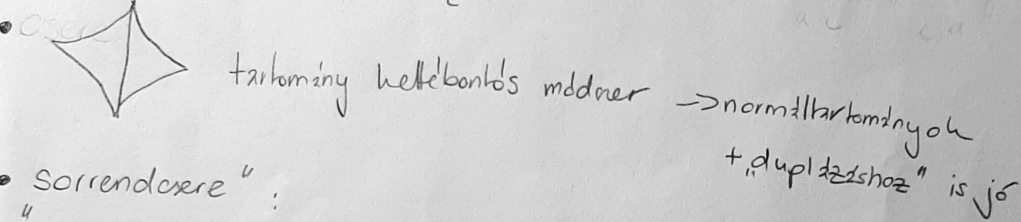 tartomány kettébontós módszer → normáltartományok
+ „duplázáshoz" is jó
• „sorrendcsere" :